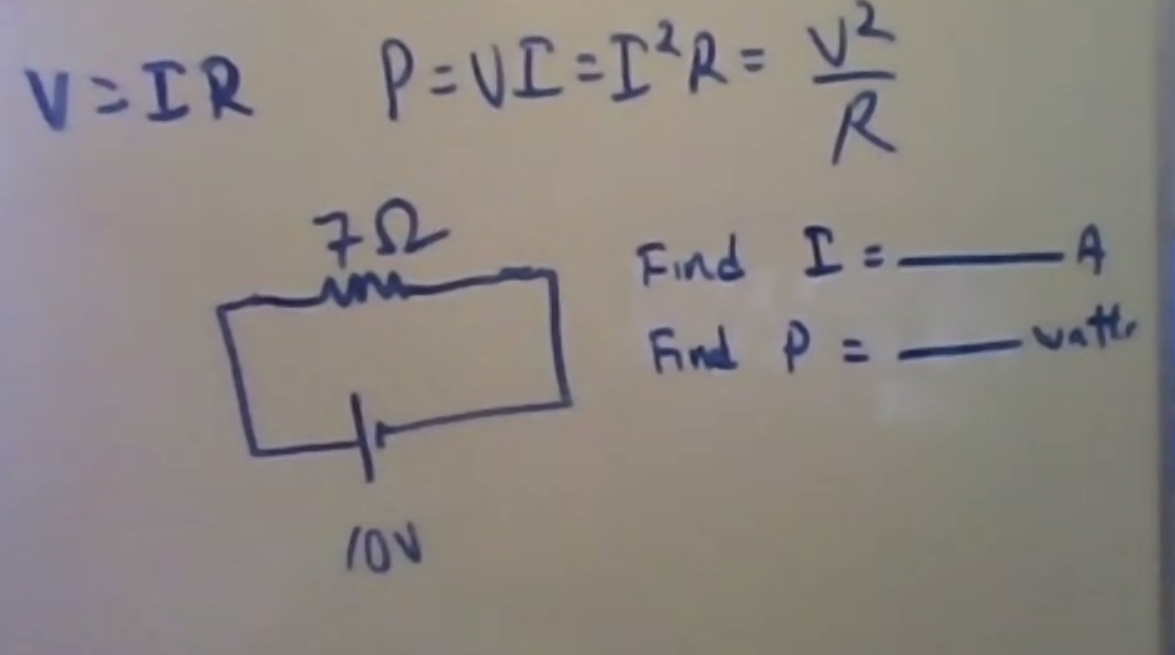 V = IR P = VI = I²R = V²/R
7Ω
Find I = ____ A
Find P = ____ watts
10V